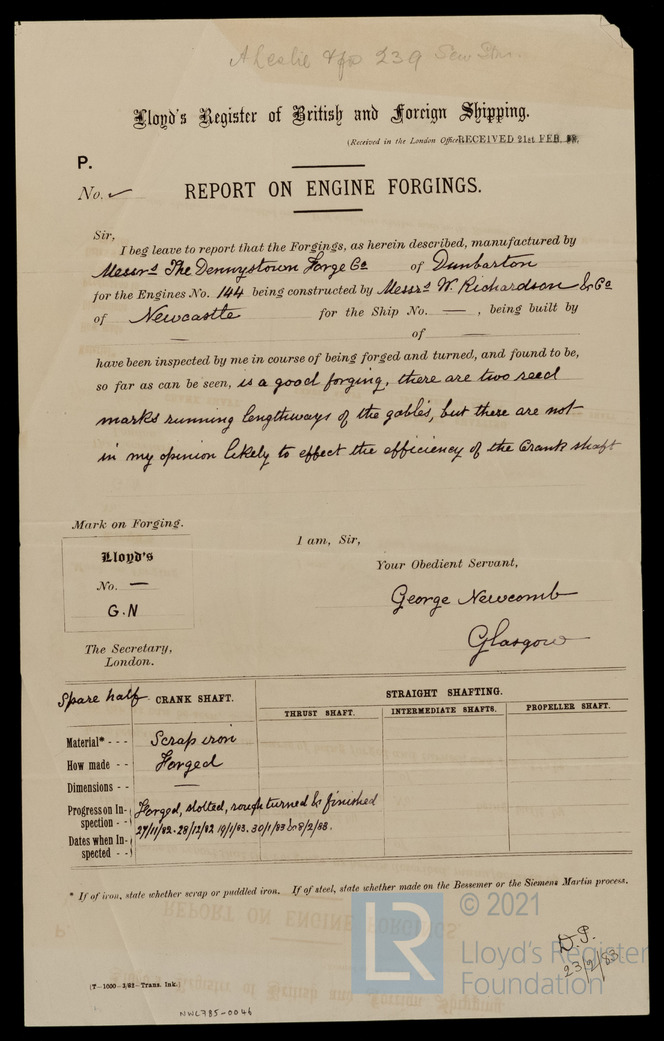 A Leslie & Co 239
Lloyd's Register of British and Foreign Shipping.
(Received in the London Office RECEIVED 21st FEB.
P.
No. ✓ REPORT ON ENGINE FORGINGS.
Sir,
I beg leave to report that the Forgings, as herein described, manufactured by
Messrs The Dennystown Forge Co of Dunbarton
for the Engines No. 144 being constructed by Messrs W. Richardson & Co
of Newcastle for the Ship No. — , being built by
— of —
have been inspected by me in course of being forged and turned, and found to be,
so far as can be seen, is a good forging, there are two reed
marks running lengthways of the gables, but there are not
in my opinion likely to effect the efficiency of the Crank shaft
Mark on Forging.
I am, Sir,
Lloyd's
Your Obedient Servant,
No. —
George Newcomb
G.N
Glasgow
The Secretary,
London.
Spare half CRANK SHAFT. STRAIGHT SHAFTING.
THRUST SHAFT. INTERMEDIATE SHAFTS. PROPELLER SHAFT.
Material* - - - Scrap iron
How made - - Forged
Dimensions - - —
Progress on In- Forged, slotted, rough turned & finished
spection - -
27/11/82 - 28/12/82 19/1/83. 30/1/83 & 8/2/83.
Dates when In-
spected - -
* If of iron, state whether scrap or puddled iron. If of steel, state whether made on the Bessemer or the Siemens Martin process.
© 2021
LR Lloyd's Register
Foundation
D.P.
23/2/83
(T—1000—3/82—Trans. Ink.)
NWC785-0046